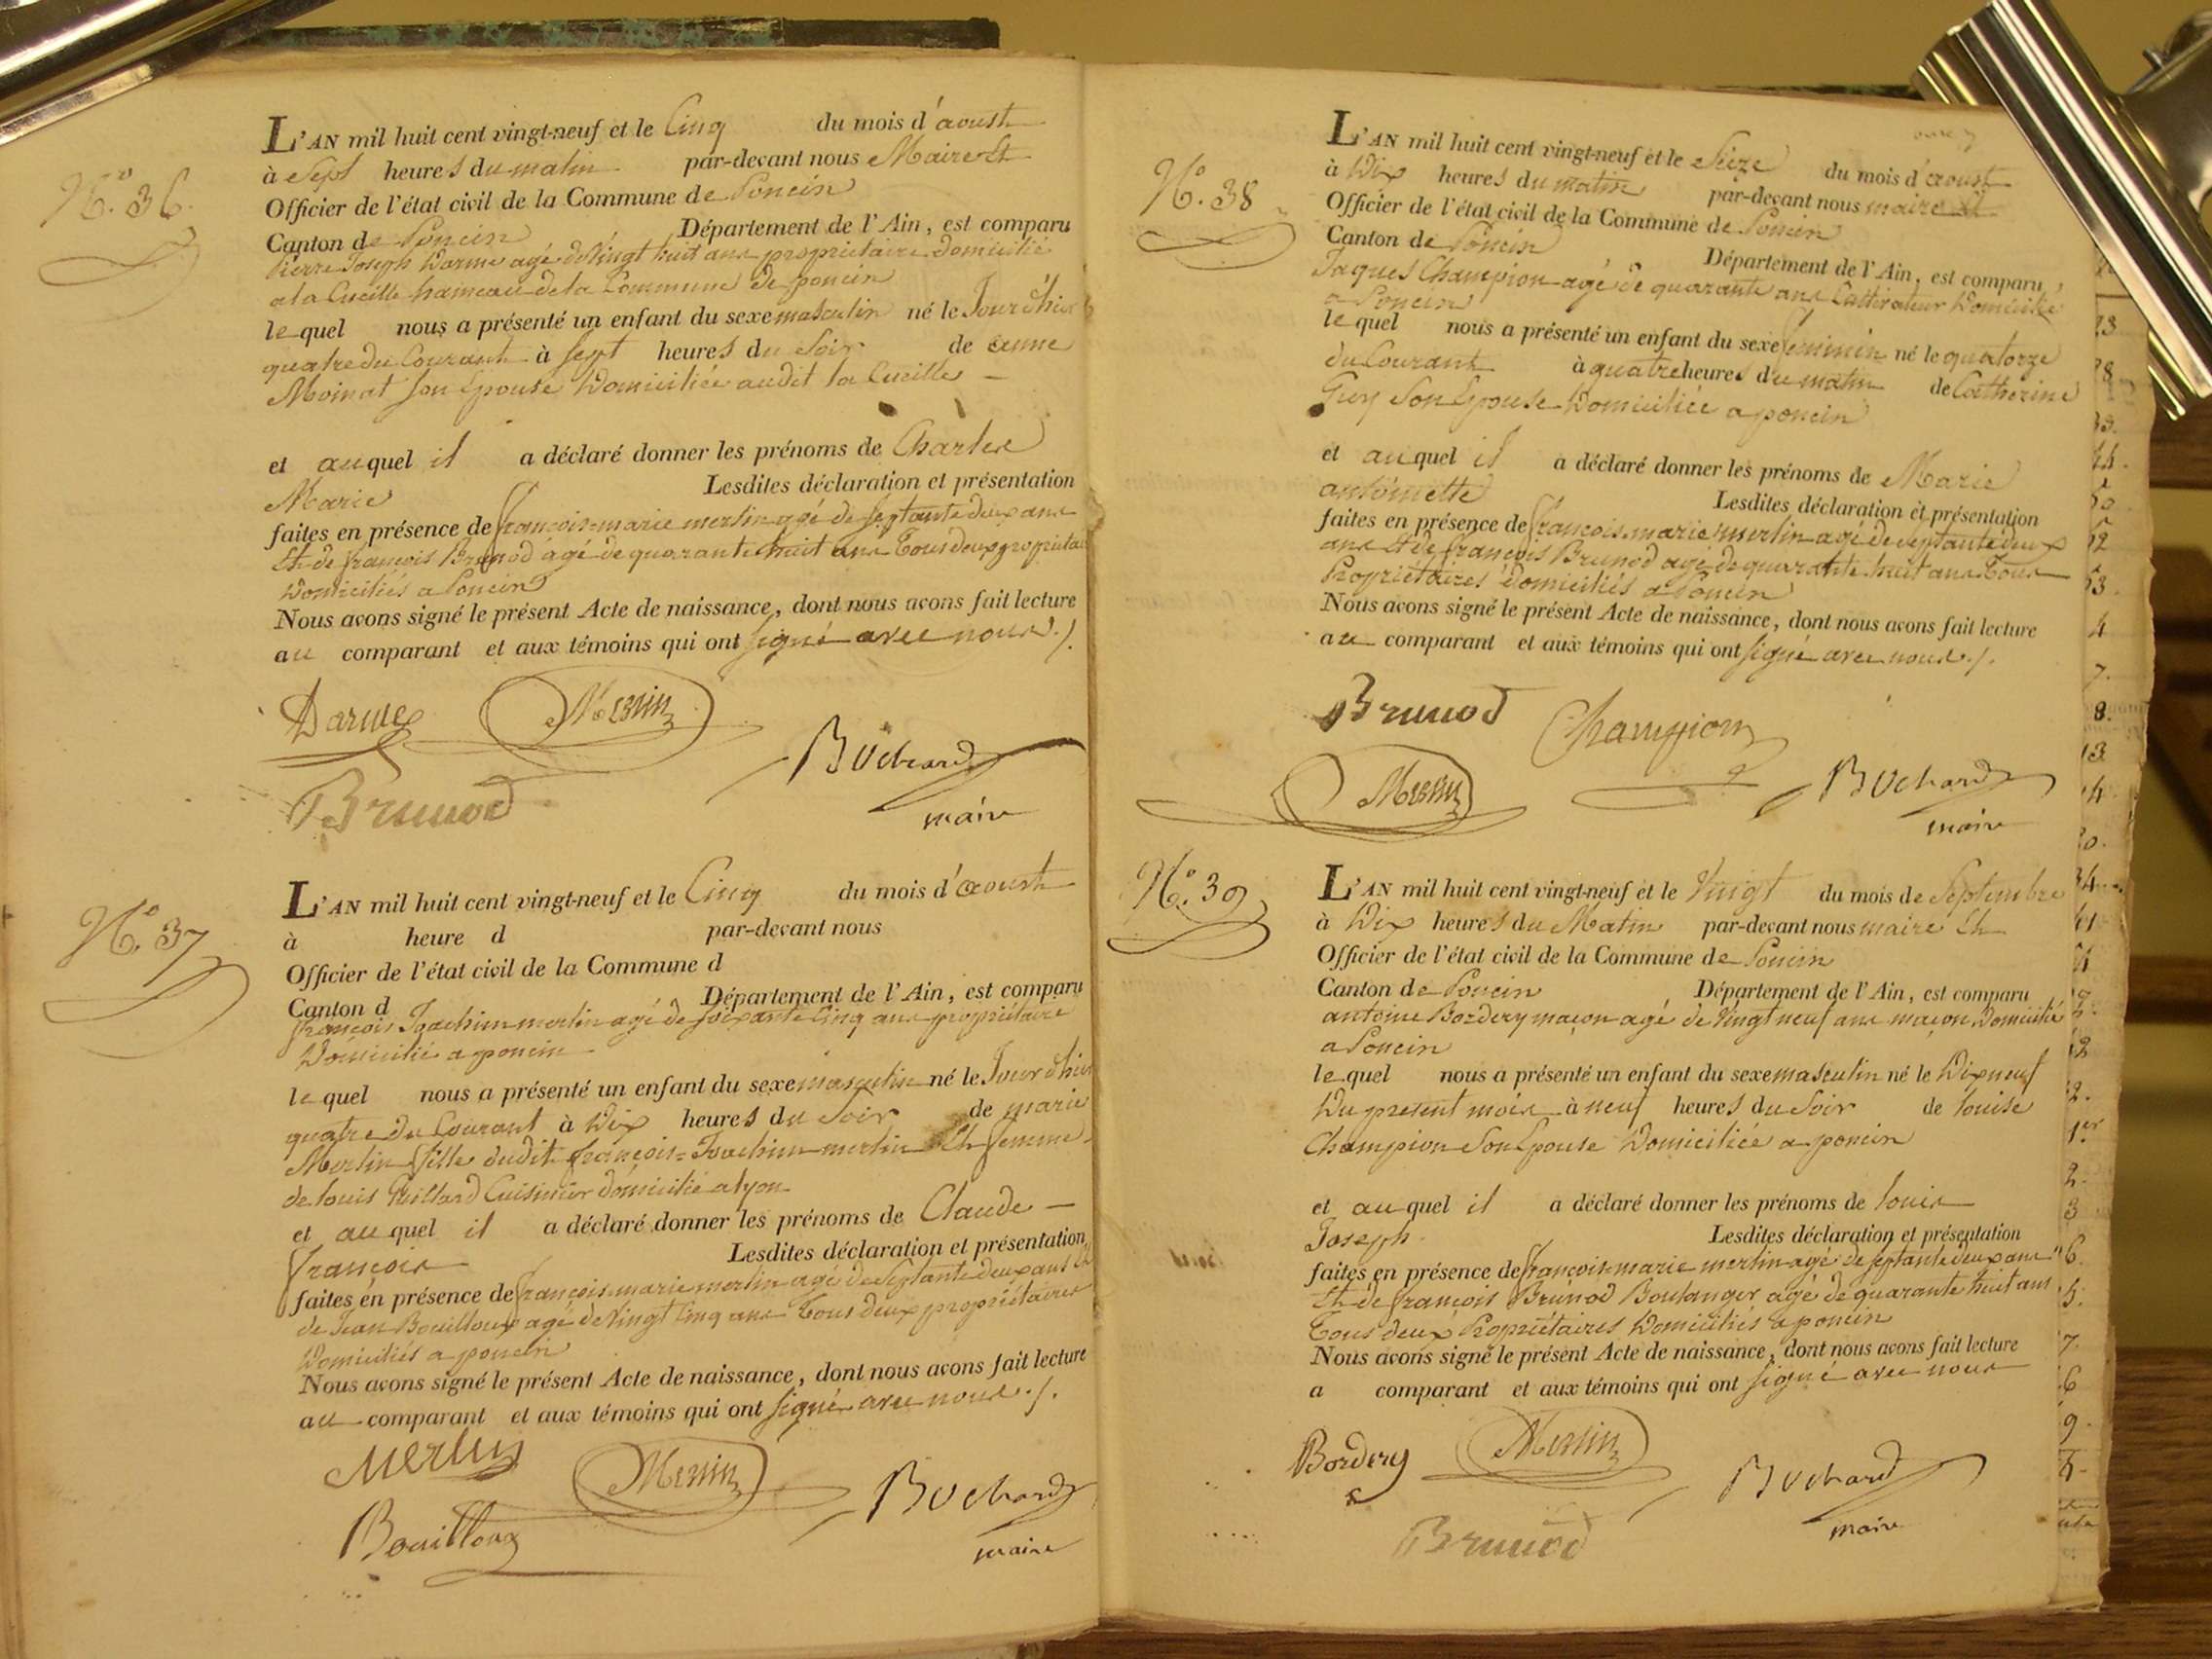 N.º 36.
L'AN mil huit cent vingt-neuf et le Cinq du mois d'aoust
à Sept heures du matin par-devant nous Maire Et
Officier de l'état civil de la Commune de Poncin
Canton de Poncin Département de l'Ain, est comparu
Pierre Joseph Darme agé de Vingt huit ans propriétaire Domicilié
a la Cueille hameau de la Commune de poncin
le quel nous a présenté un enfant du sexe masculin né le Jour d'hier
quatre du Courant à Sept heures du Soir de anne
Moinat Son Epouse Domiciliée audit la Cueille
et auquel il a déclaré donner les prénoms de Charles
Marie Lesdites déclaration et présentation
faites en présence de françois-marie merlin agé de Septante deux ans
Et de françois Brunod agé de quarante huit ans Tous deux propriétai
Domiciliés a Poncin
Nous avons signé le présent Acte de naissance, dont nous avons fait lecture
au comparant et aux témoins qui ont Signé avec nous ./.
Darme Merlin
Bochard
Brunod
maire
N.º 37
L'AN mil huit cent vingt-neuf et le Cinq du mois d'aoust
à heure d par-devant nous
Officier de l'état civil de la Commune d
Canton d Département de l'Ain, est comparu
françois Joachim merlin agé de soixante cinq ans propriétaire
Domicilié a poncin
le quel nous a présenté un enfant du sexe masculin né le Jour d'hier
quatre du Courant à Dix heures du Soir de marie
Merlin fille dudit françois=Joachim merlin Et femme
de louis Cuisinier domicilié a lyon
et au quel il a déclaré donner les prénoms de Claude
françois Lesdites déclaration et présentation
faites en présence de françois-marie merlin agé de Septante deux ans Et
de Jean Bouilloux agé de Vingt Cinq ans Tous deux propriétaires
Domiciliés a poncin
Nous avons signé le présent Acte de naissance, dont nous avons fait lecture
au comparant et aux témoins qui ont Signé avec nous ./.
Merlin Merlin
Bochard
Bouilloux
maire
N.º 38
L'AN mil huit cent vingt-neuf et le Seize du mois d'aoust
à Dix heures du matin par-devant nous maire et
Officier de l'état civil de la Commune de Poncin
Canton de Poncin Département de l'Ain, est comparu
Jaques Champion agé de quarante ans Cultivateur Domicilié
a Poncin
le quel nous a présenté un enfant du sexe feminin né le quatorze
du Courant à quatre heures du matin de Catherine
Guy Son Epouse Domiciliée a poncin
et auquel il a déclaré donner les prénoms de Marie
antoinette Lesdites déclaration et présentation
faites en présence de françois marie merlin agé de septante deux
ans Et de françois Brunod agé de quarante huit ans Tous
Propriétaires Domiciliés a Poncin
Nous avons signé le présent Acte de naissance, dont nous avons fait lecture
au comparant et aux témoins qui ont Signé avec nous ./.
Brunod Champion
Merlin Bochard
maire
N.º 39
L'AN mil huit cent vingt-neuf et le Vingt du mois de Septembre
à Dix heures du Matin par-devant nous maire Et
Officier de l'état civil de la Commune de Poncin
Canton de Poncin Département de l'Ain, est comparu
antoine Bordery maçon agé de Vingt neuf ans maçon Domicilié
a Poncin
le quel nous a présenté un enfant du sexe masculin né le Dix neuf
Du present mois à neuf heures du Soir de louise
Champion Son Epouse Domiciliée a poncin
et auquel il a déclaré donner les prénoms de louis
Joseph Lesdites déclaration et présentation
faites en présence de françois marie merlin agé de septante deux ans
Et de françois Brunod Boulanger agé de quarante huit ans
Tous deux Propriétaires Domiciliés a poncin
Nous avons signé le présent Acte de naissance, dont nous avons fait lecture
a comparant et aux témoins qui ont Signé avec nous
Bordery Merlin
Bochard
Brunod
maire